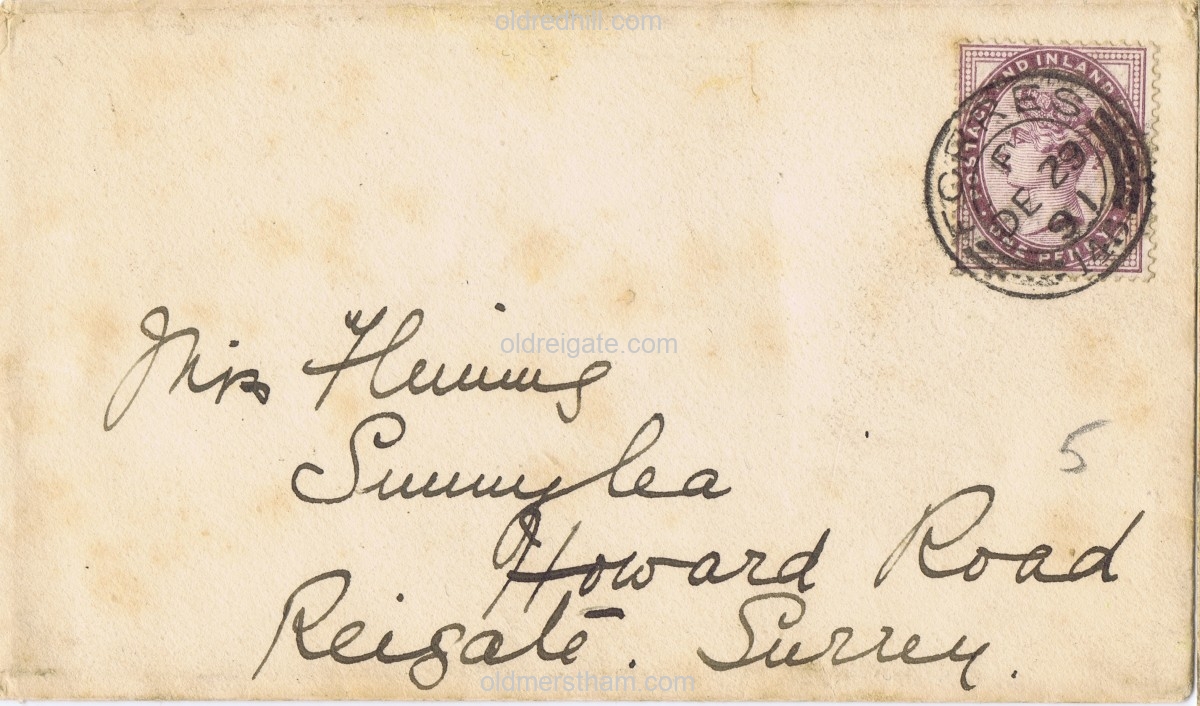 oldredhill.com
POSTAGE AND INLAND REVENUE
ONE PENNY
F
DE 29
91
Miss Fleming
oldreigate.com
Sunnylea
5
Howard Road
Reigate. Surrey.
oldmerstham.com